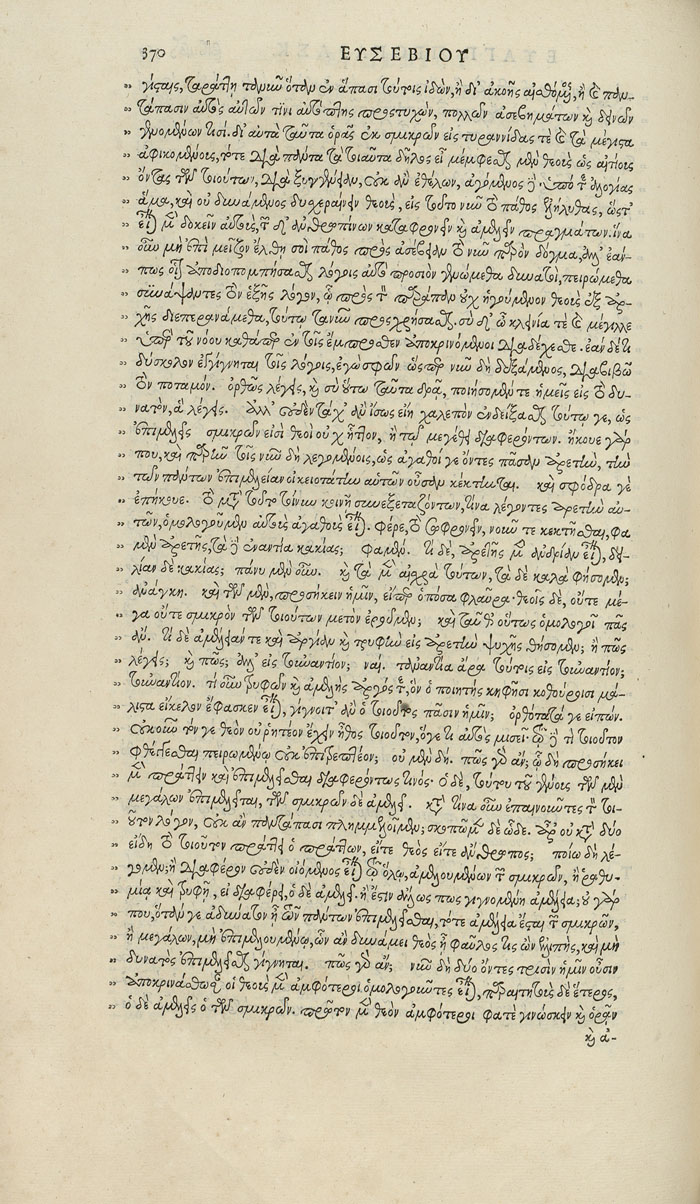 370 ΕΥΣΕΒΙΟΥ
γίσταις, ταράττῃ τὸ νῦν ὅταν ἐν ἅπασι τούτοις ἰδὼν, ἢ δι' ἀκοῆς αἰσθόμενος, ἢ καὶ παν-
τάπασιν αὐτὸς αὐτῶν τινὶ αὐτόπτης προστυχὼν, πολλῶν ἀσεβημάτων καὶ δεινῶν
γενομένων τισί. δι' αὐτὰ ταῦτα ὁρᾷς ἐκ σμικρῶν εἰς τυραννίδας τὲ καὶ τὰ μέγιστα
ἀφικομένοις, τότε διὰ πάντα τὰ τοιαῦτα δῆλος εἶ μέμφεσθαι μὲν θεοὺς ὡς αἰτίους
ὄντας τῶν τοιούτων, διὰ ξυγγένειαν, οὐκ ἂν ἐθέλων, ἀγόμενος δὲ ὑπό τε ἀλογίας
ἅμα, καὶ οὐ δυνάμενος δυσχεραίνειν θεοὺς, εἰς τοῦτο νῦν τὸ πάθος ἐλήλυθας, ὥστ'
εἶναι μὲν δοκεῖν αὐτοὺς, τῶν δ' ἀνθρωπίνων καταφρονεῖν καὶ ἀμελεῖν πραγμάτων. ἵνα
οὖν μὴ ἐπὶ μεῖζον ἔλθῃ σοι πάθος πρὸς ἀσέβειαν τὸ νῦν παρὸν δόγμα, ἀλλ' ἐάν-
πως οἷον ἀποδιοπομπήσασθαι λόγοις αὐτὸ προσιὸν γενώμεθα δυνατοὶ, πειρώμεθα
συνάψαντες τὸν ἑξῆς λόγον, ᾧ πρὸς τὸν παράπαν οὐχ ἡγούμενον θεοὺς ἐξ ἀρ-
χῆς διεπερανάμεθα, τούτῳ τανῦν προσχρήσασθαι. σὺ δ' ὦ κλεινία τὲ καὶ μέγιλλε
ὑπὲρ τοῦ νέου καθάπερ ἐν τοῖς ἔμπροσθεν ἀποκρινόμενοι διαδέχεσθε. ἐὰν δέ τι
δύσκολον ἐγγίγνηται τοῖς λόγοις, ἐγὼ σφῶν ὥσπερ νῦν δὴ δεξάμενος, διαβιβῶ
τὸν ποταμόν. ὀρθῶς λέγεις, καὶ σὺ οὕτω ταῦτα δρᾶ, ποιήσομέν τε ἡμεῖς εἰς τὸ δυ-
νατὸν, ἃ λέγεις. ἀλλ' οὐδὲν τάχ' ἂν ἴσως εἴη χαλεπὸν ἐνδείξασθαι τούτῳ γε, ὡς
ἐπιμελεῖς σμικρῶν εἰσὶ θεοὶ οὐχ ἧττον, ἢ τῶν μεγέθει διαφερόντων. ἤκουε γάρ
που, καὶ παρῆν τοῖς νῦν δὴ λεγομένοις, ὡς ἀγαθοί γε ὄντες πᾶσαν ἀρετὴν, τὴν
τῶν πάντων ἐπιμέλειαν οἰκειοτάτην αὑτῶν οὖσαν κέκτηνται. καὶ σφόδρα γε
ἐπήκουε. τὸ μετὰ τοῦτο τοίνυν κοινῇ συνεξεταζόντων, τίνα λέγοντες ἀρετὴν αὐ-
τῶν, ὁμολογοῦμεν αὐτοὺς ἀγαθοὺς εἶναι. φέρε, τὸ σωφρονεῖν, νοῦν τε κεκτῆσθαι, φα
μὲν ἀρετῆς, τὰ δὲ ἐναντία κακίας; φαμέν. τί δὲ, ἀρετῆς μὲν ἀνδρείαν εἶναι, δει-
λίαν δὲ κακίας; πάνυ μὲν οὖν. καὶ τὰ μὲν αἰσχρὰ τούτων, τὰ δὲ καλὰ φήσομεν;
ἀνάγκη. καὶ τῶν μὲν, προσήκειν ἡμῖν, εἴπερ ὁπόσα φλαῦρα· θεοῖς δὲ, οὔτε μέ-
γα οὔτε σμικρὸν τῶν τοιούτων μετὸν ἐροῦμεν; καὶ ταῦθ' οὕτως ὁμολογοῖ πᾶς
ἄν. τί δὲ ἀμέλειάν τε καὶ ἀργίαν καὶ τρυφὴν εἰς ἀρετὴν ψυχῆς θήσομεν; ἢ πῶς
λέγεις; καὶ πῶς; ἀλλ' εἰς τοὐναντίον; ναί. τἀναντία ἄρα τούτοις εἰς τοὐναντίον;
τοὐναντίον. τί οὖν τρυφῶν καὶ ἀμελὴς ἀργός τε, ὃν ὁ ποιητὴς κηφῆσι κοθούροισι μά-
λιστα εἴκελον ἔφασκεν εἶναι, γίγνοιτ' ἂν ὁ τοιοῦτος πᾶσιν ἡμῖν; ὀρθότατά γε εἰπών.
οὐκοῦν τόν γε θεὸν οὐ ῥητέον ἔχειν ἦθος τοιοῦτον, ὅ γέ τοι αὐτὸς μισεῖ· τῷ δέ τι τοιοῦτον
φθέγγεσθαι πειρωμένῳ οὐκ ἐπιτρεπτέον; οὐ μὲν δή. πῶς γὰρ ἄν; ᾧ δὴ προσήκει
μὲν πράττειν καὶ ἐπιμελεῖσθαι διαφερόντως τινός· ὁ δὲ, τούτου τοῦ γένους τῶν μὲν
μεγάλων ἐπιμελεῖται, τῶν σμικρῶν δὲ ἀμελεῖ. κατὰ τίνα οὖν ἐπαινοῦντες τὸν τοι-
οῦτον λόγον, οὐκ ἂν παντάπασι πλημμελοῖμεν; σκοπῶμεν δὲ ὧδε. ἆρ' οὐ κατὰ δύο
εἴδη τὸ τοιοῦτον πράττει ὁ πράττων, εἴτε θεὸς εἴτε ἄνθρωπος; ποίω δὴ λέ-
γομεν; ἢ διαφέρον οὐδὲν οἰόμενος εἶναι τῷ ὅλῳ, ἀμελουμένων τῶν σμικρῶν, ἢ ῥαθυ-
μίᾳ καὶ τρυφῇ, εἰ διαφέρει, ὁ δὲ ἀμελεῖ. ἢ ἔστιν ἄλλως πως γιγνομένη ἀμέλεια; οὐ γάρ
που, ὅταν γε ἀδύνατον ᾖ τῶν πάντων ἐπιμελεῖσθαι, τότε ἀμέλεια ἔσται τῶν σμικρῶν,
ἢ μεγάλων, μὴ ἐπιμελουμένῳ, ὧν ἂν δυνάμει θεὸς ἢ φαῦλός τις ὢν ἐλλιπὴς, καὶ μὴ
δυνατὸς ἐπιμελεῖσθαι γίγνηται. πῶς γὰρ ἄν; νῦν δὴ δύο ὄντες τρισὶν ἡμῖν οὖσιν
ἀποκρινάσθωσαν, οἱ θεοὺς μὲν ἀμφότεροι ὁμολογοῦντες εἶναι, παραιτητοὺς δὲ ἕτερος,
ὁ δὲ ἀμελεῖς ὁ τῶν σμικρῶν. πρῶτον μὲν θεὸν ἀμφότεροι φατὲ γινώσκειν καὶ ὁρᾶν
καὶ ἀ-